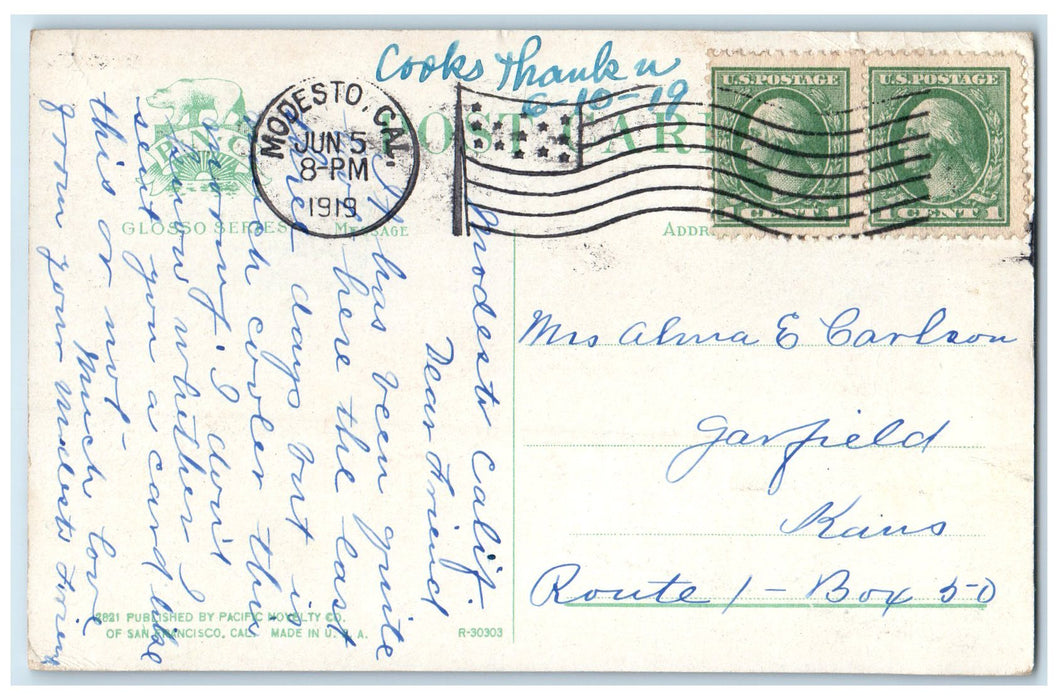 Cooks Thank u
6-10-19
POST CARD
U.S. POSTAGE
1 CENT 1
U.S. POSTAGE
1 CENT 1
MODESTO, CAL.
JUN 5
8-PM
1919
GLOSSO SERIES
MESSAGE
ADDR
Modesto Calif.
Dear Friend
It has been quite
here the last
three days but is
much cooler this
morning. I don't
know whither I
sent you a card like
this or not.
Much love
from your Modesto Friend
Mrs Alma E Carlson
Garfield
Kans
Route 1 - Box 50
2821 PUBLISHED BY PACIFIC NOVELTY CO.
OF SAN FRANCISCO, CAL. MADE IN U. S. A.
R-30303